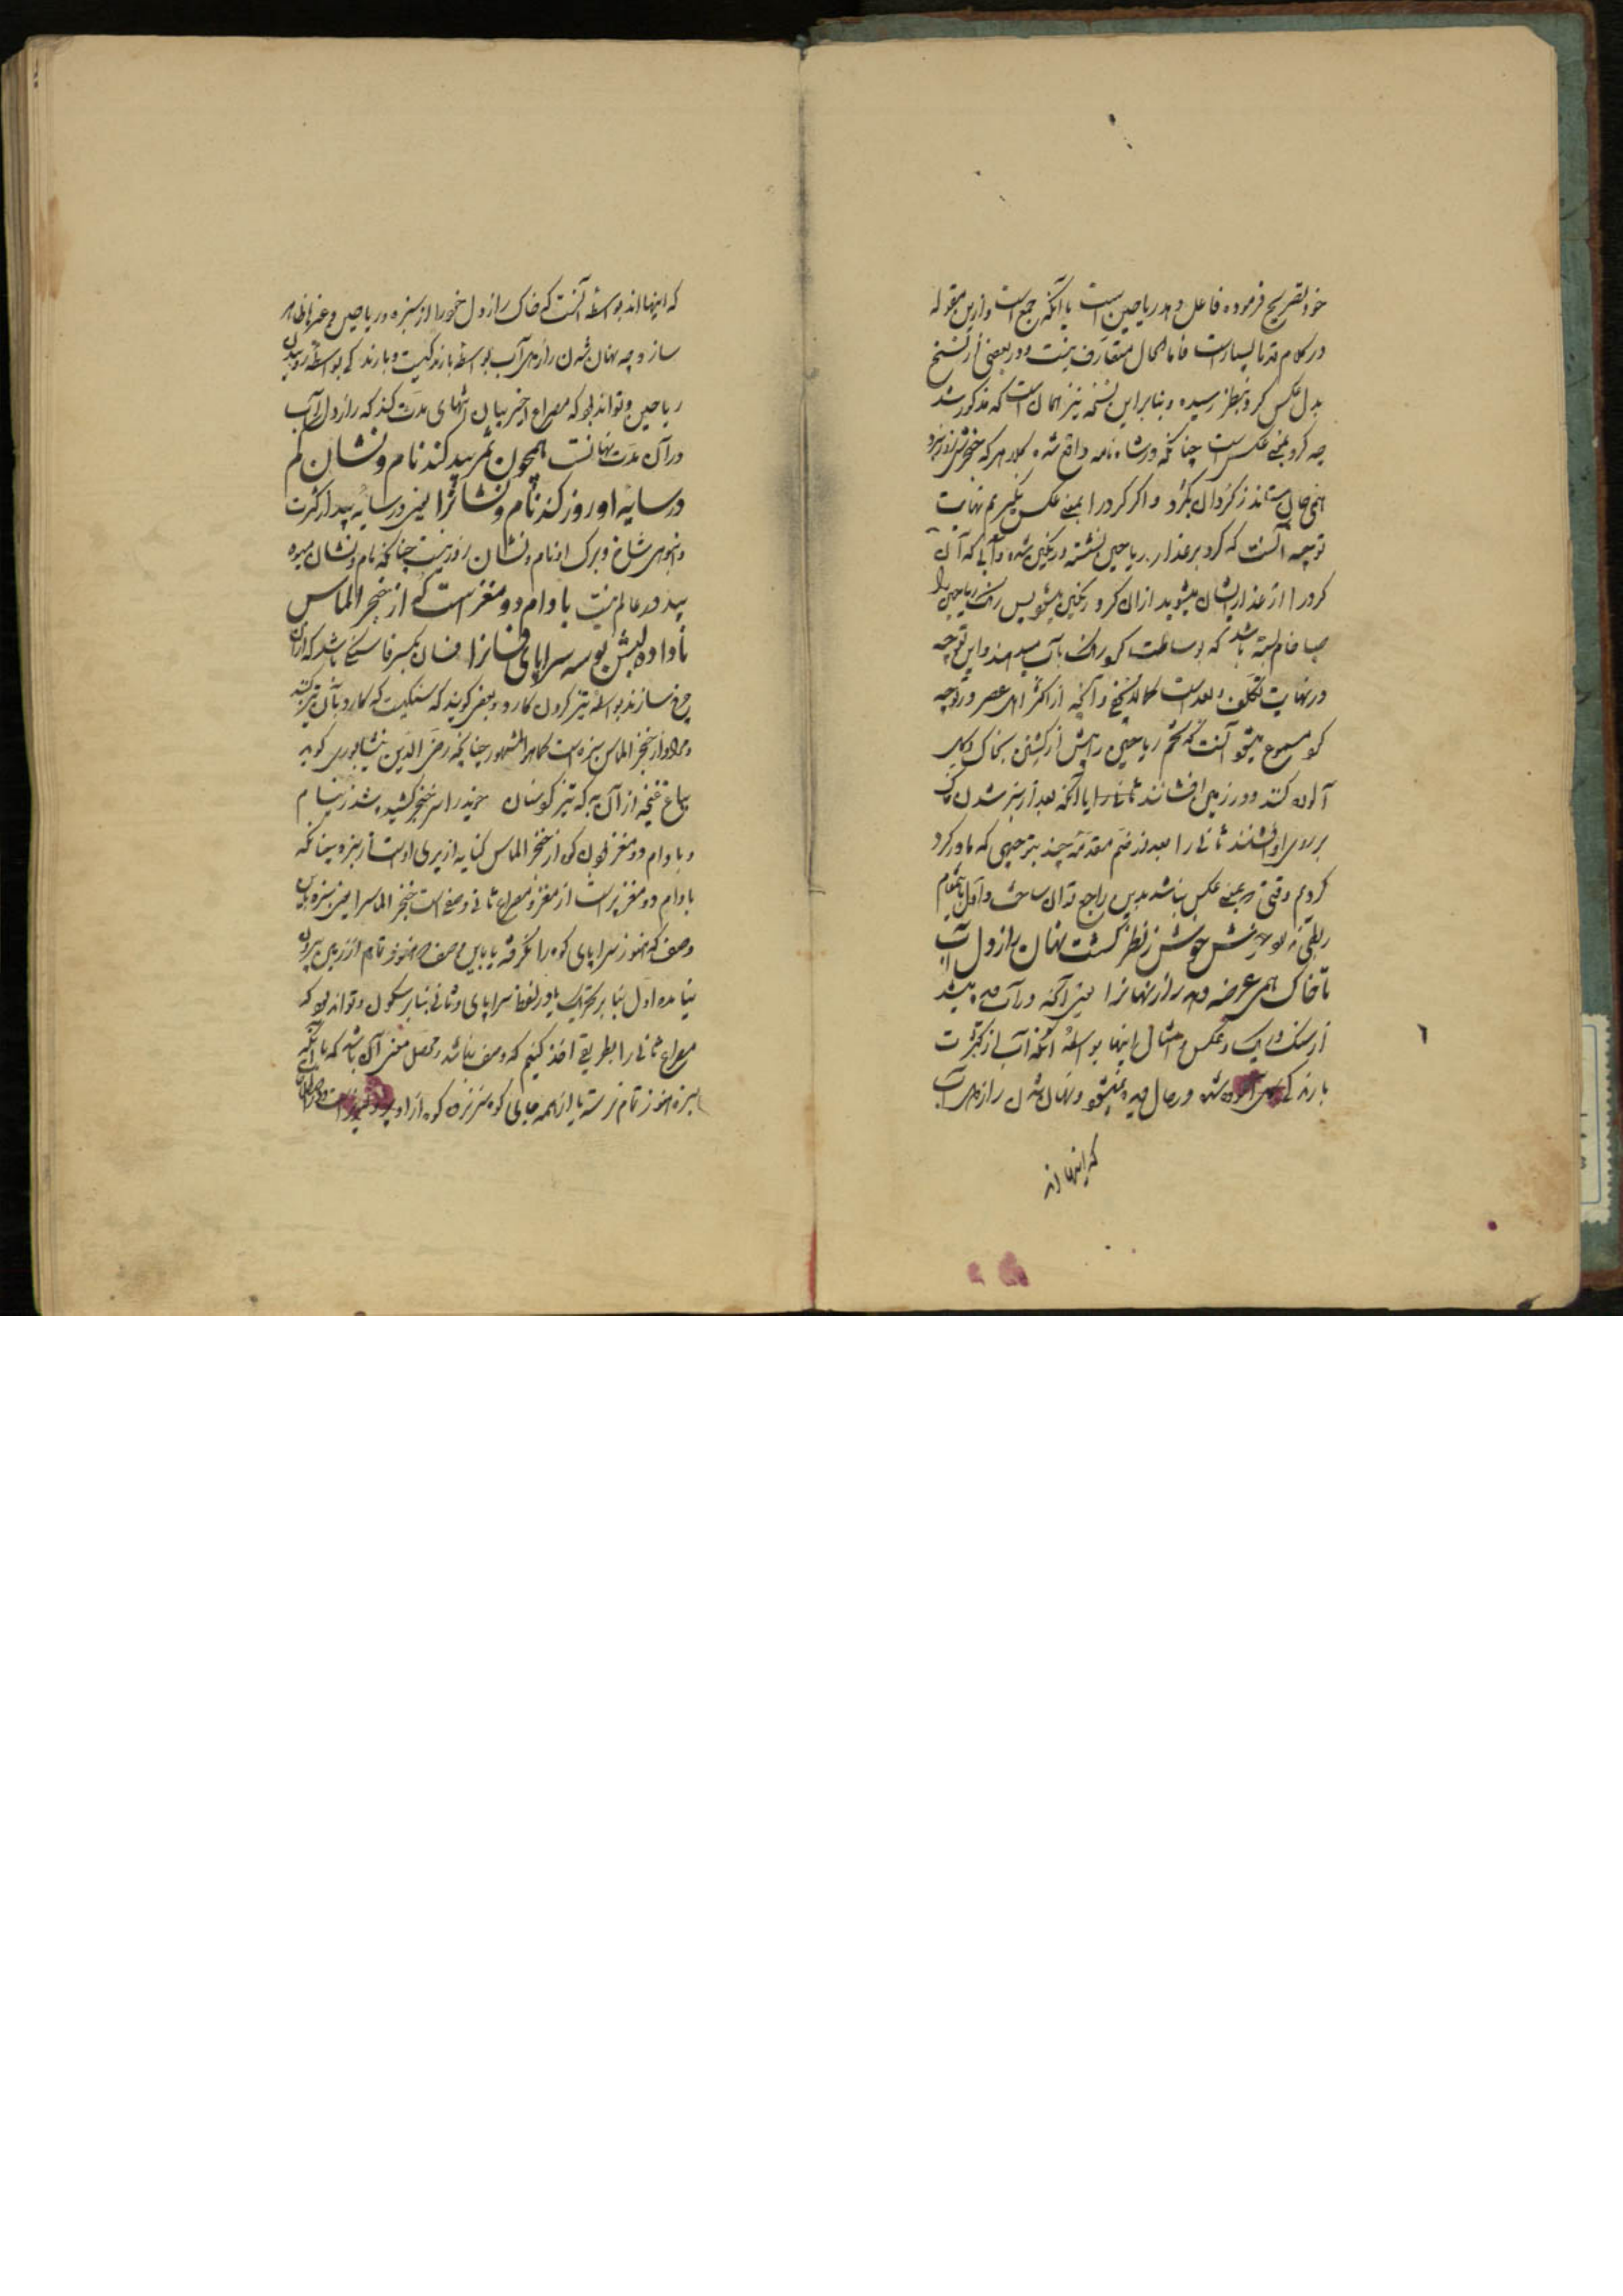 خود تصریح فرموده فاعل دهد ریاحین است با آنکه جمع است و ازین مقوله
در کلام قدما بسیارست فاما الحال متعارف نیست و در بعضی از نسخ
بدل عکس کرد بنظر رسیده و بنابراین نسخه نیز همان است که مذکور شد
چه کرد بمعنی عکس است چنانکه در شاه نامه واقع شده
همی جان ستاند ز گردان بگرد و اگر کرد را بمعنی عکس نگیریم نهایت
توجیه آنست که کرد بر عذار ریاحین نشسته و رنگین شده و آبی که آن
کرد را از عذار ایشان میشوید ازان کرد رنگین میشود پس رنک ریاحین را
صبا خام بسته باشد که بوساطت کرد رنک بآب میدهند و این توجیه
در نهایت تکلف و بعد است کما لا یخفی و آنچه از اکثر اهل عصر در توجیه
کرد مسموع میشود آنست که تخم ریاحین را پیش از کشتن بخاک
آلوده کنند و در زمین افشانند یا آنکه بعد از سبز شدن خاک
بر روی او افشانند ثانی را بعد از ضم مقدمه چند بتوجیهی که ما در کرد
کردیم وقتی که بمعنی عکس نباشد راجع توان ساخت و اول باین مقام
ربطی ندارد جوشش ز نظر گشت نهان راز دل آب
تا خاک همی عرضه دهد راز نهانرا یعنی آنچه در آب
از سنک و ریک و عکس و امثال اینها بواسطه آنکه آب از کثرت
بارندکی کل آلوده شده در حال دیده نمیشود و نهان شدن راز دل آب
که اینها اند
که اینها اند بواسطه آنست که خاک راز دل خود را از سبزه و ریاحین و غیرها ظاهر
سازد چه نهان شدن راز دل آب بواسطه بارندکیست و بارندکی بواسطه روییدن
ریاحین و تواند بود که مصراع اخیر بیان انتهای مدت کند که راز دل آب
در آن مدت نهانست همچون ثمر بید کند نام و نشان کم
در سایه او روز کند نام و نشانرا یعنی در سایه بید از کثرت
و انبوهی شاخ و برک از نام و نشان روز نیست چنانکه نام و نشان میوه
بید در عالم نیست بادام دو مغز است که از خنجر الماس
ناداده لبش بوسه سراپای فسانرا فسان بکسر فا سنگی باشد که ازان
چرخ سازند بواسطه تیز کردن کارد و بعضی گویند که سنگیست که کارد بآن تیز کنند
و مراد از خنجر الماس سبزه است کما هو المشهور چنانچه رضی الدین نیشابوری گوید
بباغ غنچه از آن به که تیز کوسنان خوید را سر خنجر کشیده شد ز نیام
و بادام دو مغز بودن کوه از خنجر الماس کنایه از پری اوست از سبزه چنانکه
بادام دو مغز پر است از مغز و مصراع ثانی وصف است خنجر الماس را یعنی سبزه باین
وصف که هنوز سراپای کوه را نکرفته یا باین وصف که هنوز تمام از زمین بیرون
نیامده اول بنابر تحریک یا در لفظ سراپای و ثانی بنابر سکون و تواند بود که
مصراع ثانی را بطریقی اخذ کنیم که وصف نباشد و محصل معنی آن باشد که با آنکه
سبزه هنوز تمام نرسته یا از همه جای کوه سر نزده کوه از او پر